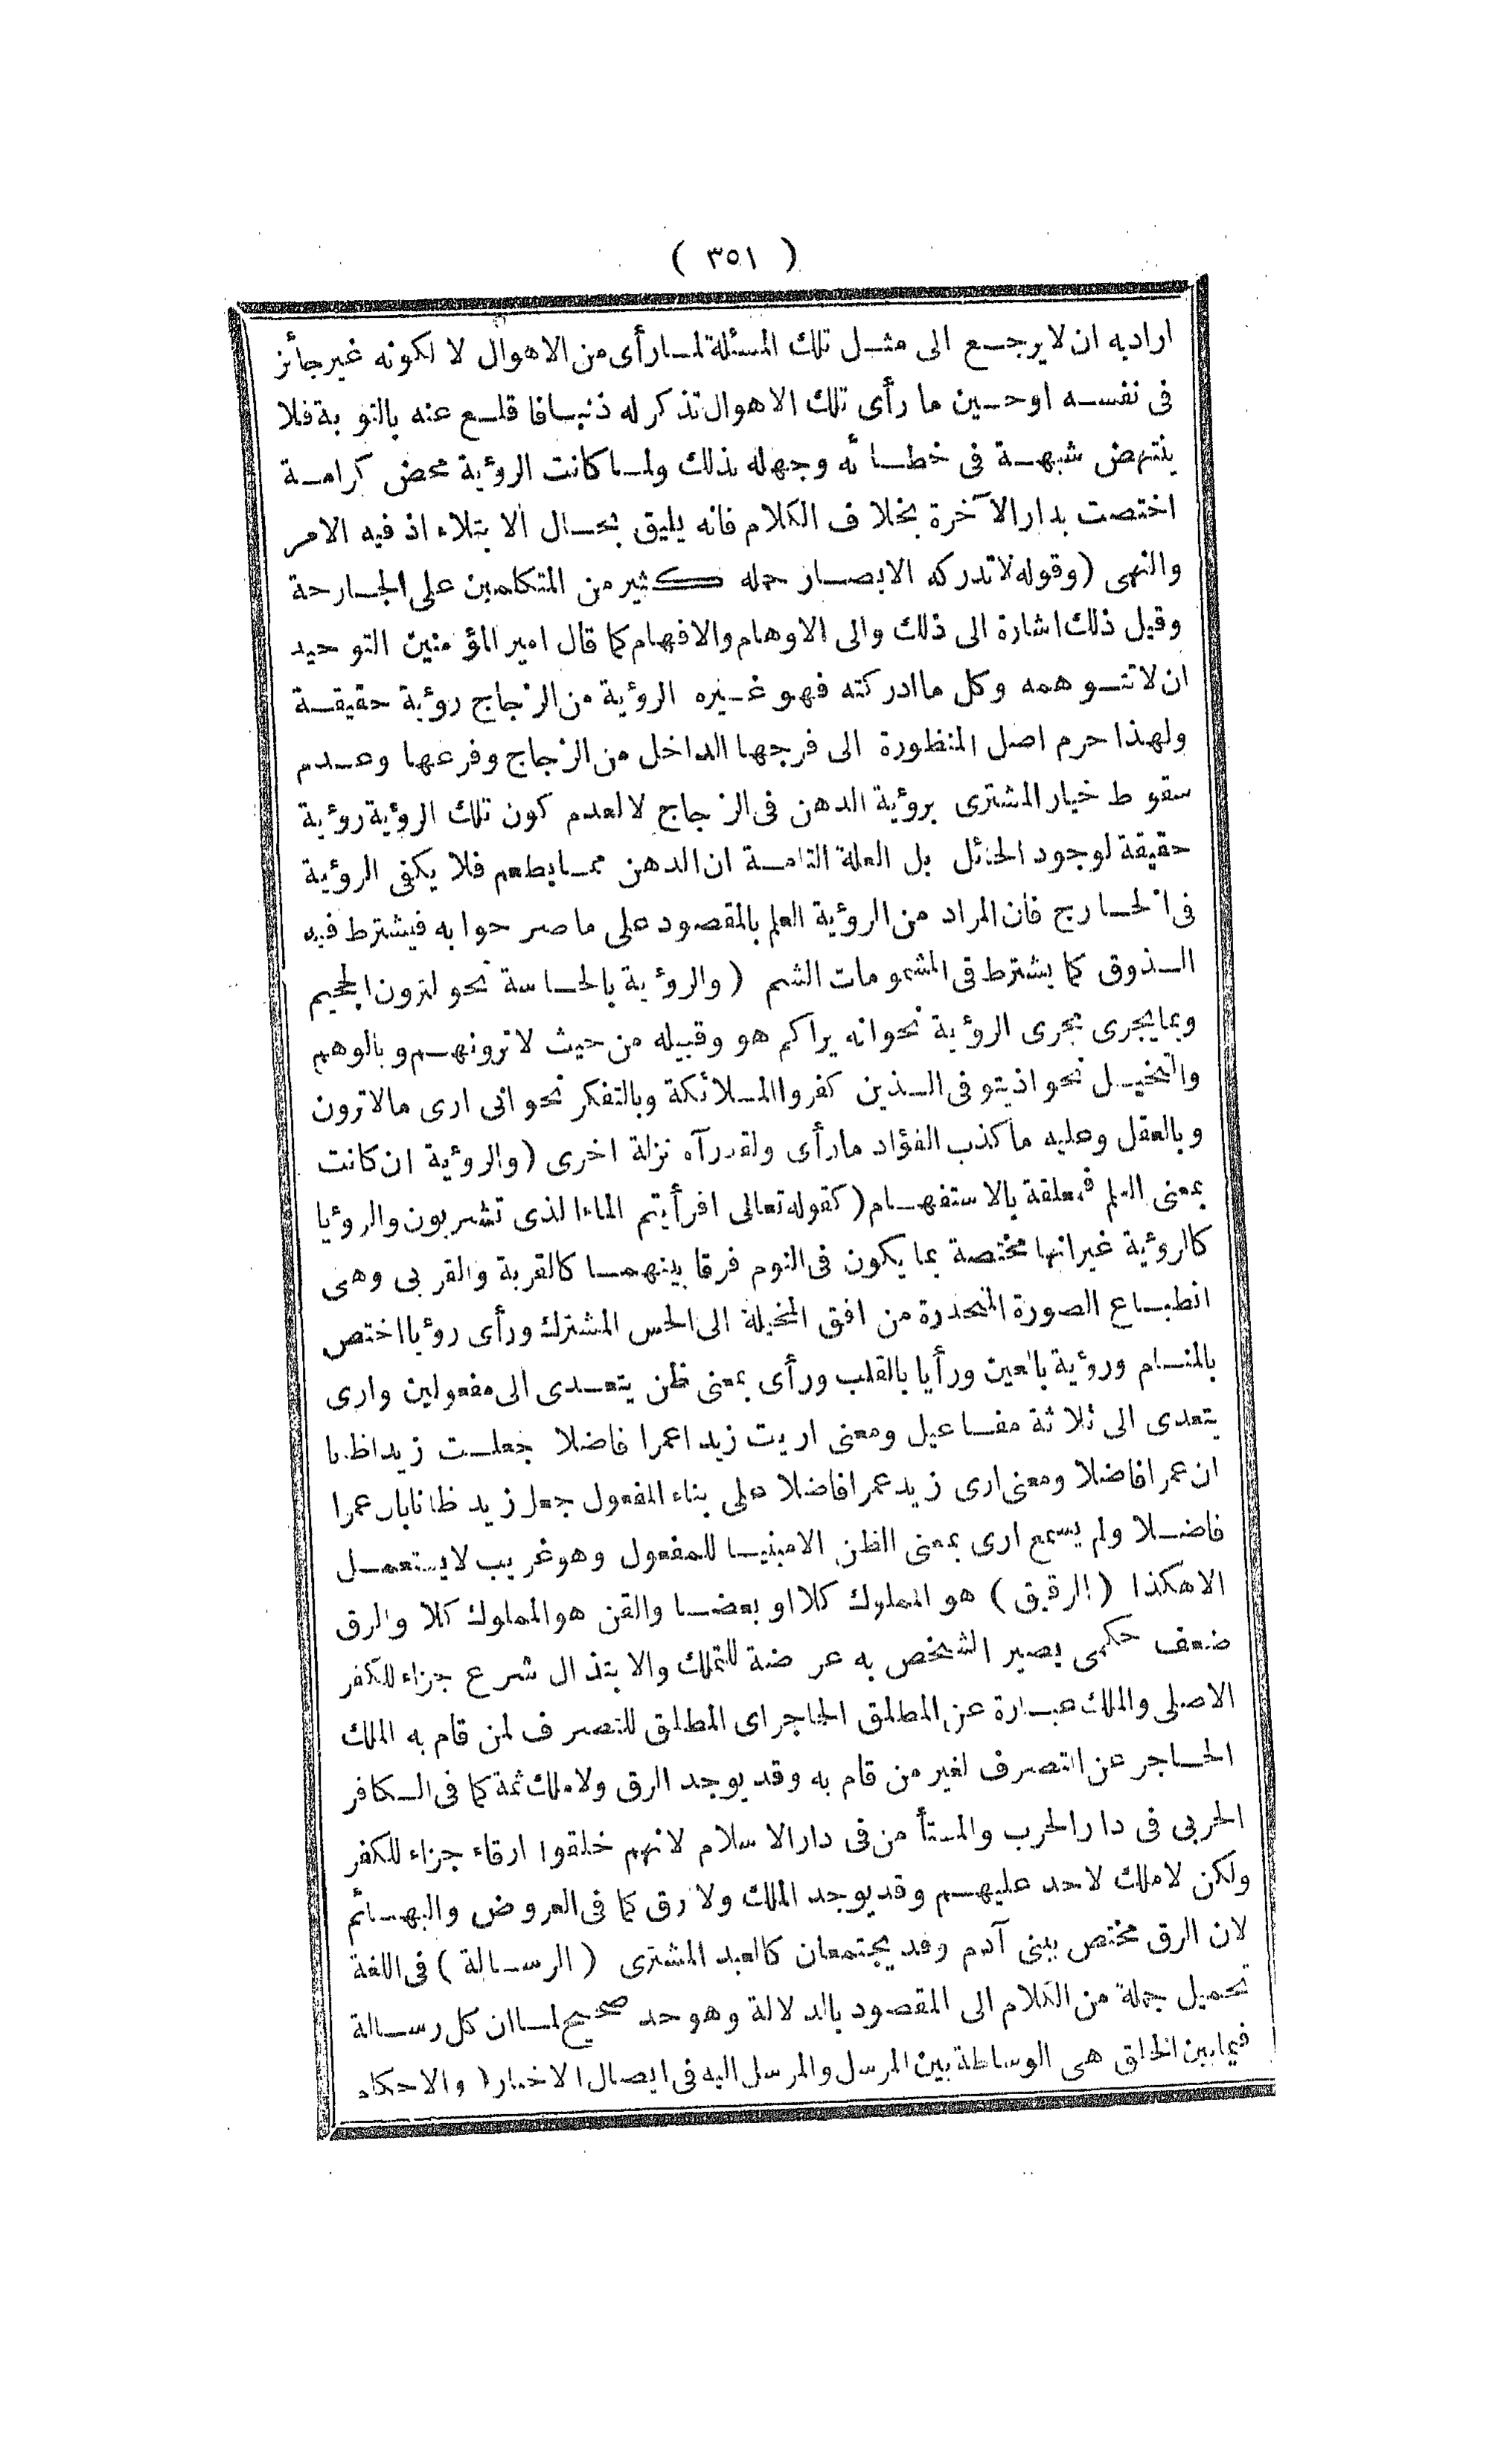 ( ٣٥١ )
اراد به ان لا يرجع الى مثل تلك المسئلة لما رأى من الاهوال لا لكونه غير جائز
فى نفسه او حين ما رأى تلك الاهوال تذكر له ذنبا فاقلع عنه بالتوبة فلا
ينتهض شبهة فى خطائه وجهله بذلك ولما كانت الرؤية محض كرامة
اختصت بدار الآخرة بخلاف الكلام فانه يليق بحال الابتلاء اذ فيه الامر
والنهى ( وقوله لا تدركه الابصار حمله كثير من المتكلمين على الجارحة
وقيل ذلك اشارة الى ذلك والى الاوهام والافهام كما قال امير المؤمنين التوحيد
ان لا تتوهمه وكل ما ادركته فهو غيره الرؤية من الزجاج رؤية حقيقة
ولهذا حرم اصل المنظورة الى فرجها الداخل من الزجاج وفرعها وعدم
سقوط خيار المشترى برؤية الدهن فى الزجاج لا لعدم كون تلك الرؤية رؤية
حقيقة لوجود الحائل بل العلة التامة ان الدهن مما يطعم فلا يكفى الرؤية
فى الخارج فان المراد من الرؤية العلم بالمقصود على ما صرحوا به فيشترط فيه
الذوق كما يشترط فى المشمومات الشم ( والرؤية بالحاسة نحو لترون الجحيم
وبما يجرى مجرى الرؤية نحو انه يراكم هو وقبيله من حيث لا ترونهم وبالوهم
والتخيل نحو اذ يتوفى الذين كفروا الملائكة وبالتفكر نحو انى ارى مالا ترون
وبالعقل وعليه ما كذب الفؤاد ما رأى ولقد رآه نزلة اخرى ( والرؤية ان كانت
بمعنى العلم فمعلقة بالاستفهام ( كقوله تعالى افرأيتم الماء الذى تشربون والرؤيا
كالرؤية غير انها مختصة بما يكون فى النوم فرقا بينهما كالقربة والقربى وهى
انطباع الصورة المنحدرة من افق المتخيلة الى الحس المشترك ورأى رؤيا اختص
بالمنام ورؤية بالعين ورأيا بالقلب ورأى بمعنى ظن يتعدى الى مفعولين وارى
يتعدى الى ثلاثة مفاعيل ومعنى اريت زيدا عمرا فاضلا جعلت زيدا ظانا
ان عمرا فاضلا ومعنى ارى زيد عمرا فاضلا على بناء المفعول جعل زيد ظانا بان عمرا
فاضلا ولم يسمع ارى بمعنى الظن الا مبنيا للمفعول وهو غريب لا يستعمل
الا هكذا ( الرقيق ) هو المملوك كلا او بعضا والقن هو المملوك كلا والرق
ضعف حكمى يصير الشخص به عرضة للتملك والابتذال شرع جزاء للكفر
الاصلى والملك عبارة عن المطلق الحاجر اى المطلق للتصرف لمن قام به الملك
الحاجر عن التصرف لغير من قام به وقد يوجد الرق ولا ملك ثمة كما فى الكافر
الحربى فى دار الحرب والمستأمن فى دار الاسلام لانهم خلقوا ارقاء جزاء للكفر
ولكن لا ملك لاحد عليهم وقد يوجد الملك ولا رق كما فى العروض والبهائم
لان الرق مختص ببنى آدم وقد يجتمعان كالعبد المشترى ( الرسالة ) فى اللغة
تحميل جملة من الكلام الى المقصود بالدلالة وهو حد صحيح لما ان كل رسالة
فيما بين الخلق هى الوساطة بين المرسل والمرسل اليه فى ايصال الاخبار والاحكام